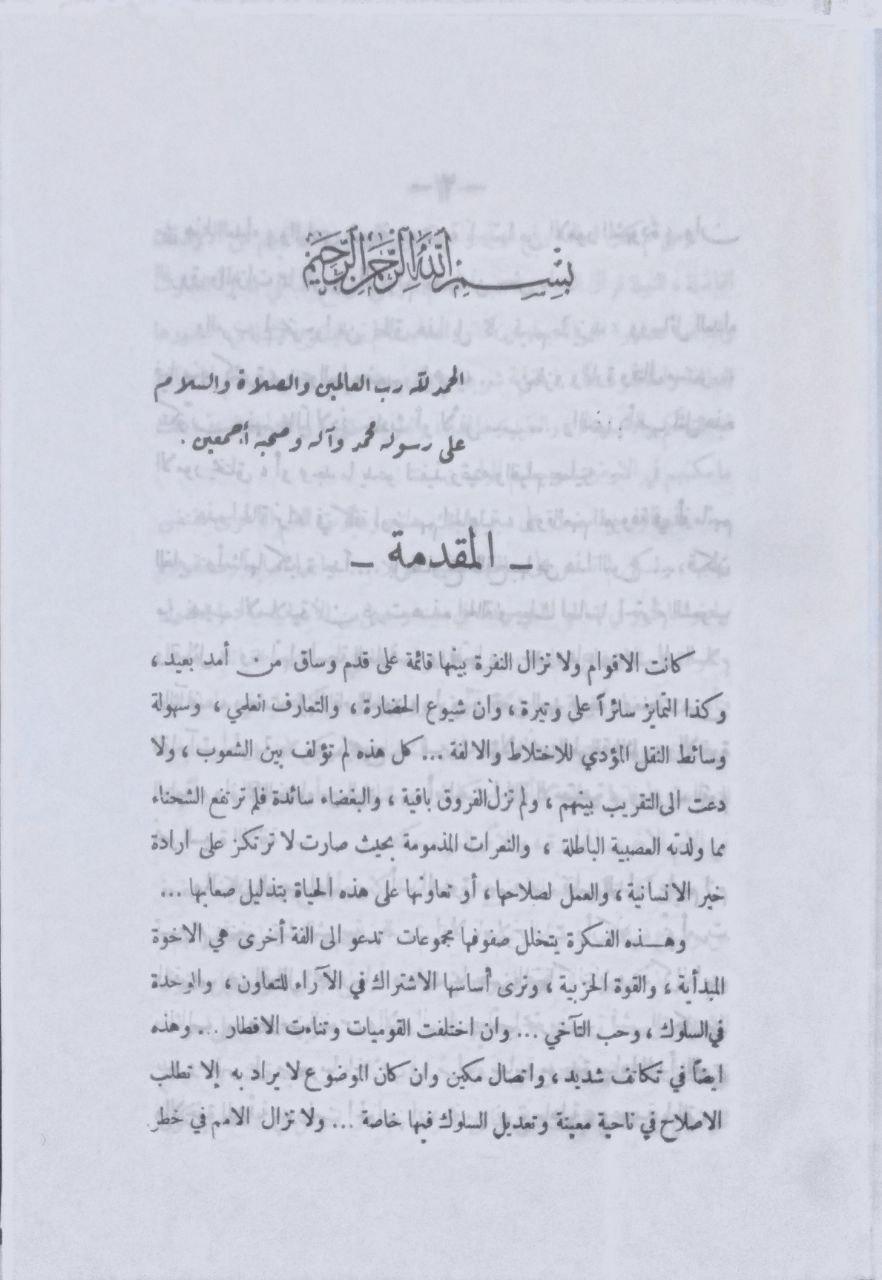 بسم الله الرحمن الرحيم
الحمد لله رب العالمين والصلاة والسلام
على رسوله محمد وآله وصحبه أجمعين .
ــ المقدمة ــ
كانت الاقوام ولا تزال النفرة بينها قائمة على قدم وساق من أمد بعيد ،
وكذا التمايز سائراً على وتيرة ، وان شيوع الحضارة ، والتعارف العلمي ، وسهولة
وسائط النقل المؤدي للاختلاط والالفة ... كل هذه لم تؤلف بين الشعوب ، ولا
دعت الى التقريب بينهم ، ولم تزل الفروق باقية ، والبغضاء سائدة فلم ترتفع الشحناء
مما ولدته العصبية الباطلة ، والنعرات المذمومة بحيث صارت لا ترتكز على ارادة
خير الانسانية ، والعمل لصلاحها ، أو تعاونها على هذه الحياة بتذليل صعابها ...
وهــذه الفـكرة يتخلل صفوفها مجموعات تدعو الى الفة أخرى هي الاخوة
المبدأية ، والقوة الحزبية ، وترى أساسها الاشتراك في الآراء للتعاون ، والوحدة
في السلوك ، وحب التآخي ... وان اختلفت القوميات وتناءت الاقطار ... وهذه
ايضاً في تكاتف شديد ، واتصال مكين وان كان الموضوع لا يراد به إلا تطلب
الاصلاح في ناحية معينة وتعديل السلوك فيها خاصة ... ولا تزال الامم في خطر